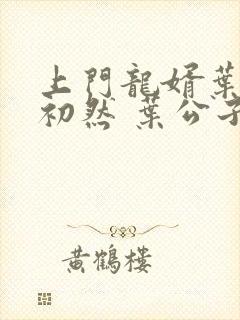 上門龍婿葉
初然 葉公子
黃鶴樓